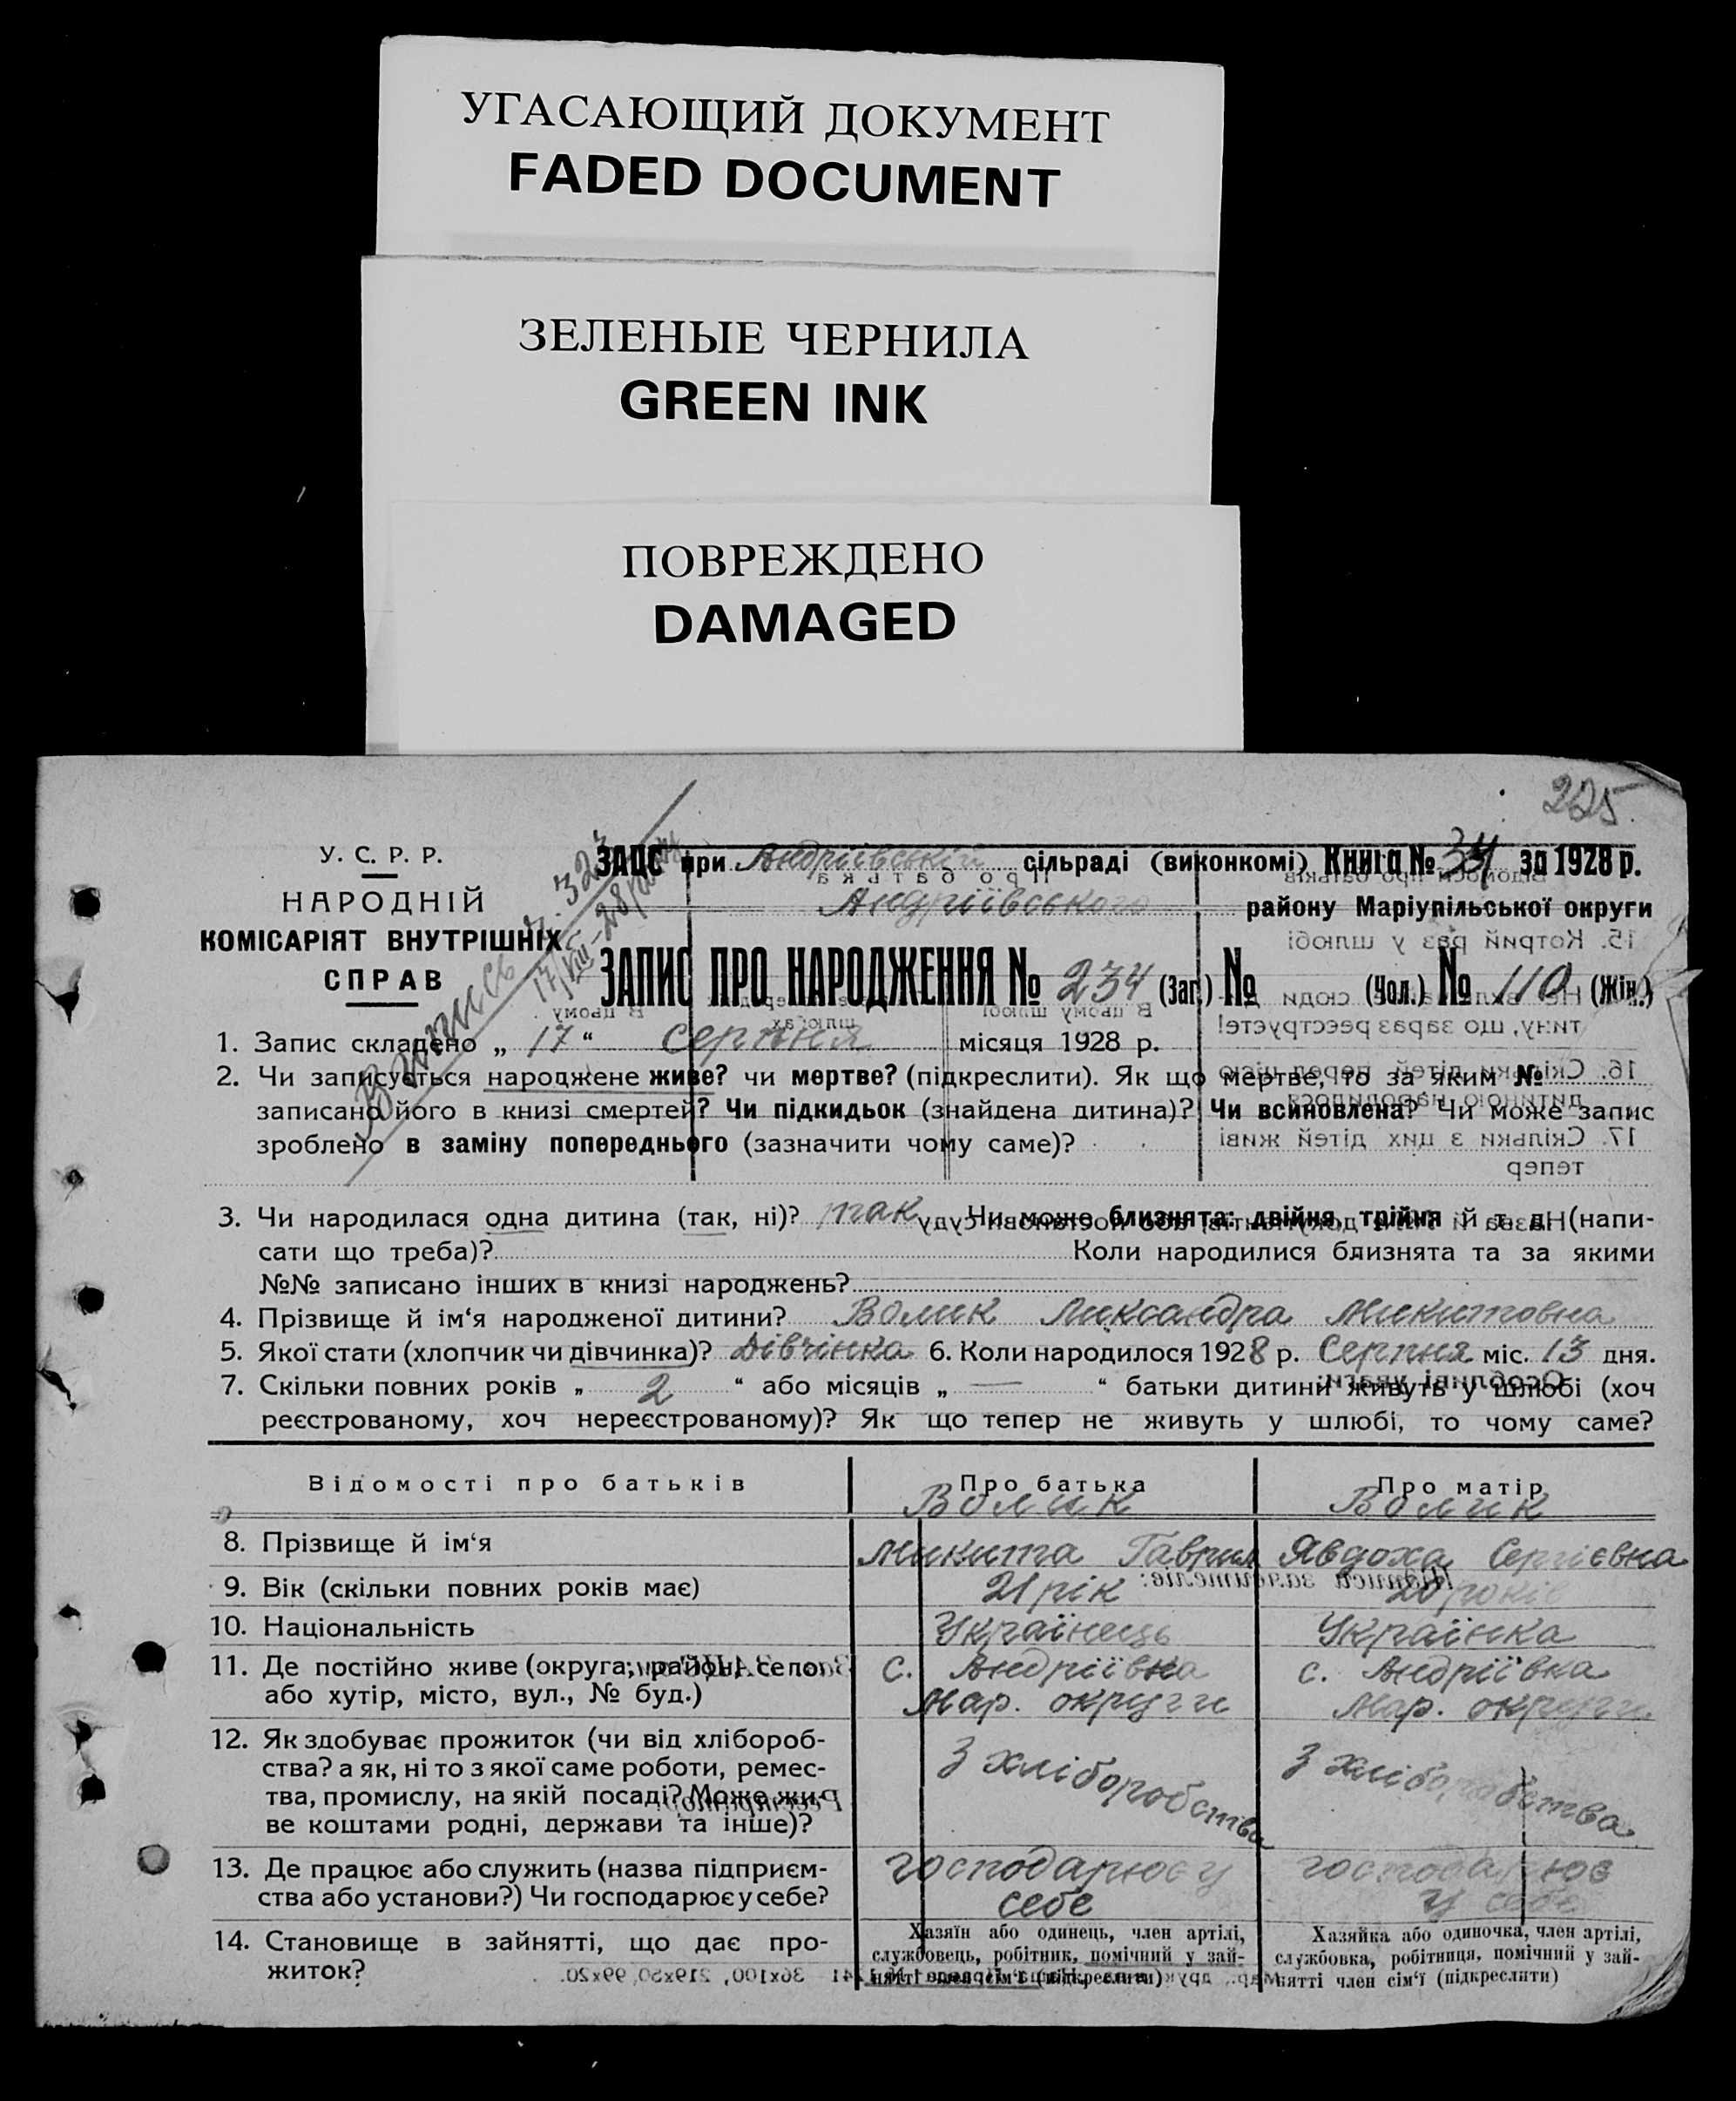 УГАСАЮЩИЙ ДОКУМЕНТ
FADED DOCUMENT
ЗЕЛЕНЫЕ ЧЕРНИЛА
GREEN INK
ПОВРЕЖДЕНО
DAMAGED
225
У. С. Р. Р.
НАРОДНІЙ
КОМІСАРІЯТ ВНУТРІШНІХ
СПРАВ
ЗАЦС при Андріївській сільраді (виконкомі) Книга № 34 за 1928 р.
Андріївського району Маріупільської округи
ЗАПИС ПРО НАРОДЖЕННЯ № 234 (Заг.) № (Чол.) № 110 (Жін.)
1. Запис складено „ 17 “ серпня місяця 1928 р.
2. Чи записується народжене живе? чи мертве? (підкреслити). Як що мертве, то за яким №
записано його в книзі смертей? Чи підкидьок (знайдена дитина)? Чи всиновлена? Чи може запис
зроблено в заміну попереднього (зазначити чому саме)?
3. Чи народилася одна дитина (так, ні)? так Чи може близнята: двійня, трійня й т. д. (напи-
сати що треба)? Коли народилися близнята та за якими
№№ записано інших в книзі народжень?
4. Прізвище й ім‘я народженої дитини? Волик Лександра Микитовна
5. Якої стати (хлопчик чи дівчинка)? Дівчінка 6. Коли народилося 1928 р. Серпня міс. 13 дня.
7. Скільки повних років „ 2 “ або місяців „ — “ батьки дитини живуть у шлюбі (хоч
реєстрованому, хоч нереєстрованому)? Як що тепер не живуть у шлюбі, то чому саме?
Відомості про батьків Про батька Про матір
Волик Волик
8. Прізвище й ім‘я Микита Гаврил Явдоха Сергієвна
9. Вік (скільки повних років має) 21 рік 20 років
10. Національність Українець Українка
11. Де постійно живе (округа, район, село с. Андріївка с. Андріївка
або хутір, місто, вул., № буд.) Мар. округи Мар. округи
12. Як здобуває прожиток (чи від хлібороб-
ства? а як, ні то з якої саме роботи, ремес- З хліборобства З хліборобства
тва, промислу, на якій посаді? Може жи-
ве коштами родні, держави та інше)?
13. Де працює або служить (назва підприєм- господарює у господарює
ства або установи?) Чи господарює у себе? себе у себе
14. Становище в зайнятті, що дає про-
житок?
Хазяїн або одинець, член артілі,
службовець, робітник, помічний у зай-
нятті член сім‘ї (підкреслити)
Хазяйка або одиночка, член артілі,
службовка, робітниця, помічний у зай-
нятті член сім‘ї (підкреслити)